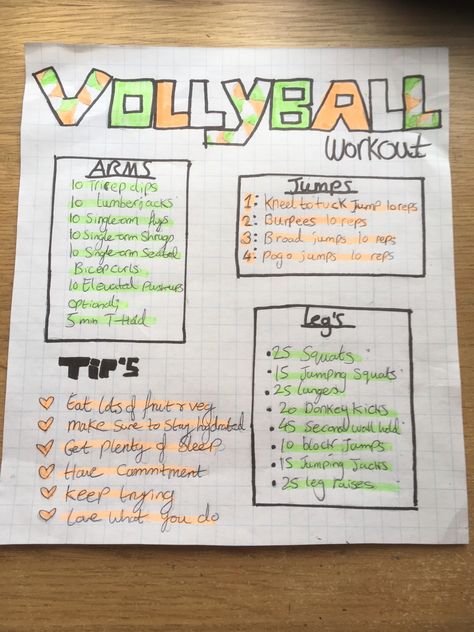 VOLLYBALL
Workout
ARMS
10 Tricep dips
10 Lumberjacks
10 Single-arm flys
10 Single-arm Shrugs
10 Single-arm Seated
Bicep curls
10 Elevated Pushups
optional;
5 min T-Hold
Jumps
1: Kneel to tuck Jump 10 reps
2: Burpees 10 reps
3: Broad jumps 10 reps
4: Pogo jumps 10 reps
Leg's
• 25 Squats
• 15 Jumping Squats
• 25 Lunges
• 20 Donkey Kicks
• 45 Second wall hold
• 10 block Jumps
• 15 Jumping Jacks
• 25 leg raises
TIP'S
Eat lots of fruit & veg
Make Sure to Stay hydrated
Get Plenty of Sleep
Have Commitment
Keep trying
Love what you do